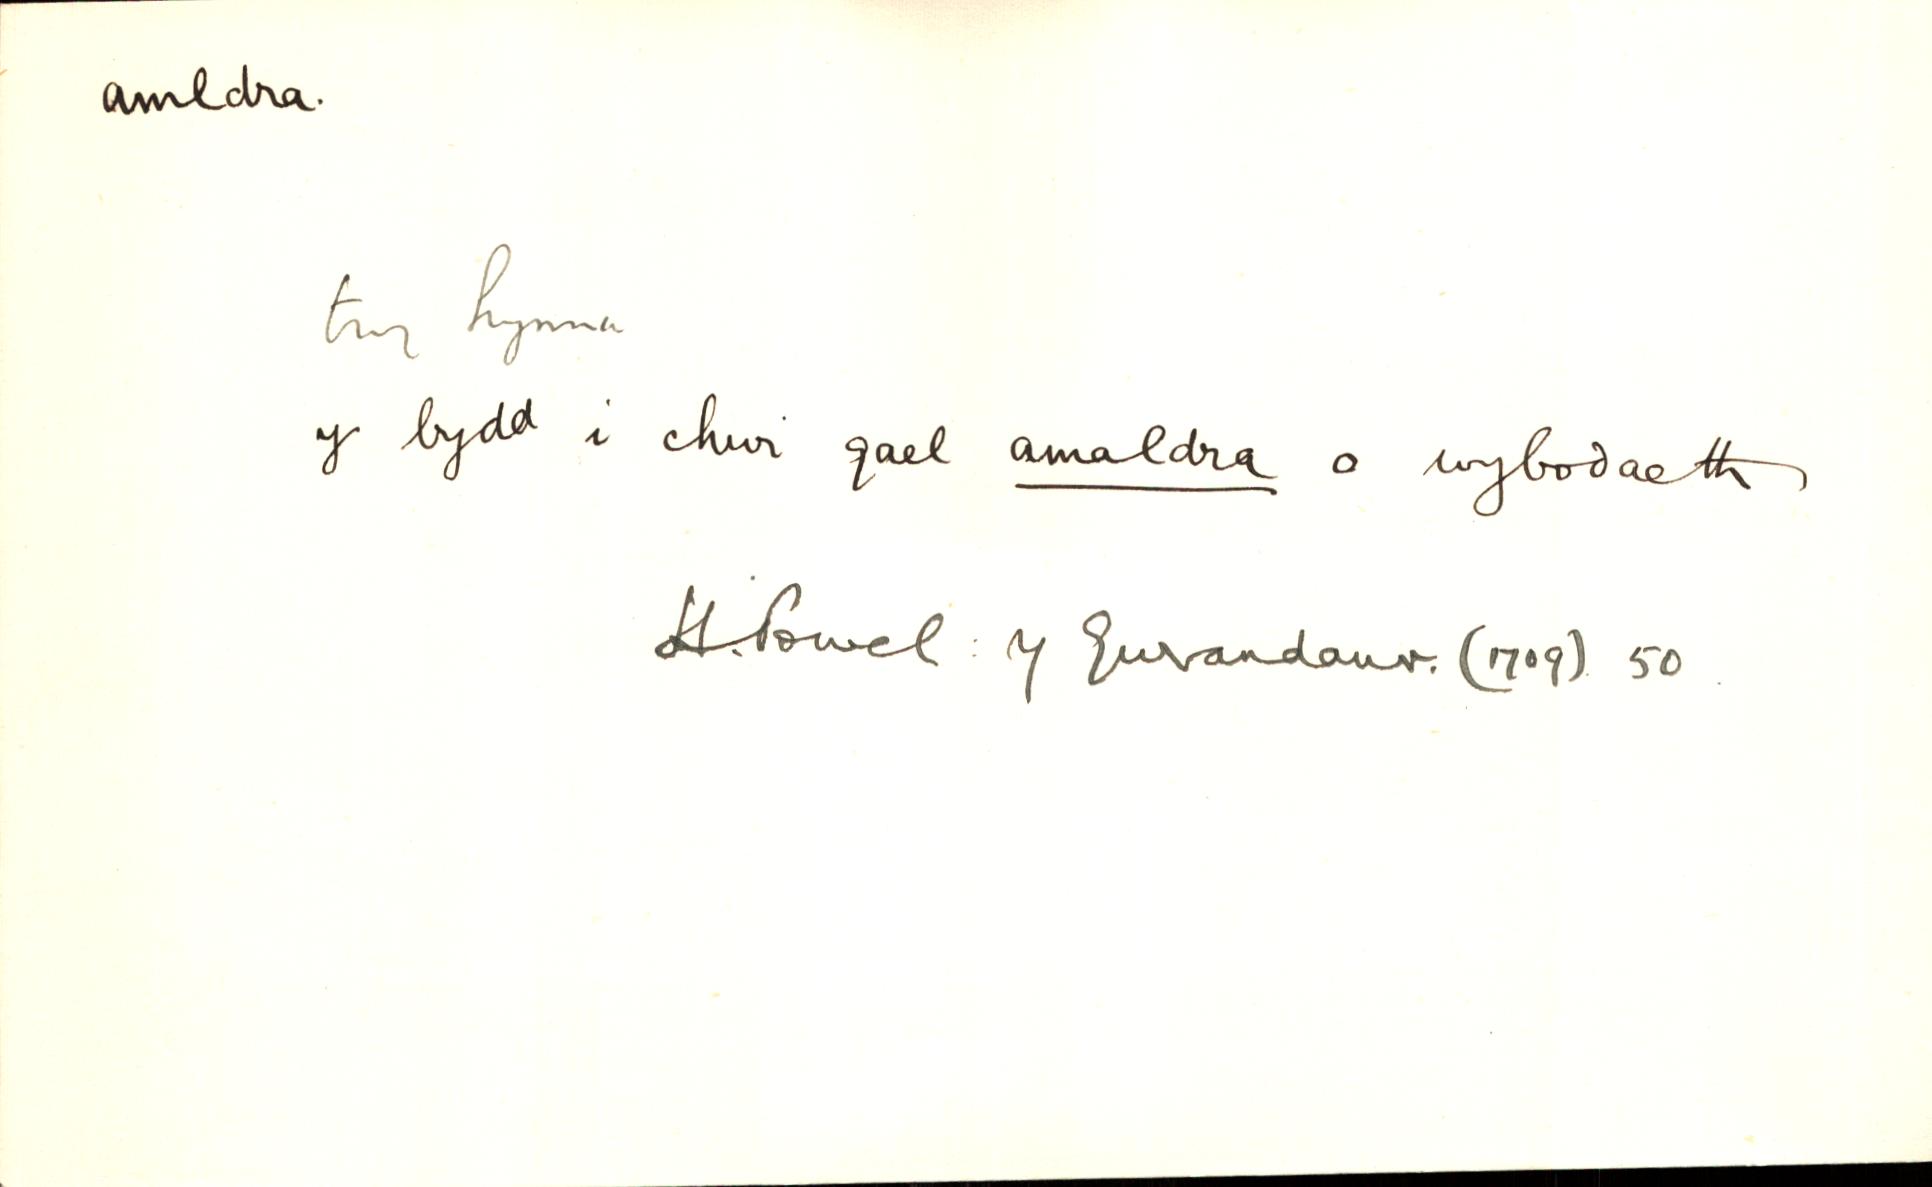 amldra.
trwy hynna
y bydd i chwi gael amaldra o wybodaeth
H. Powel : Y Gwrandawr. (1709) 50